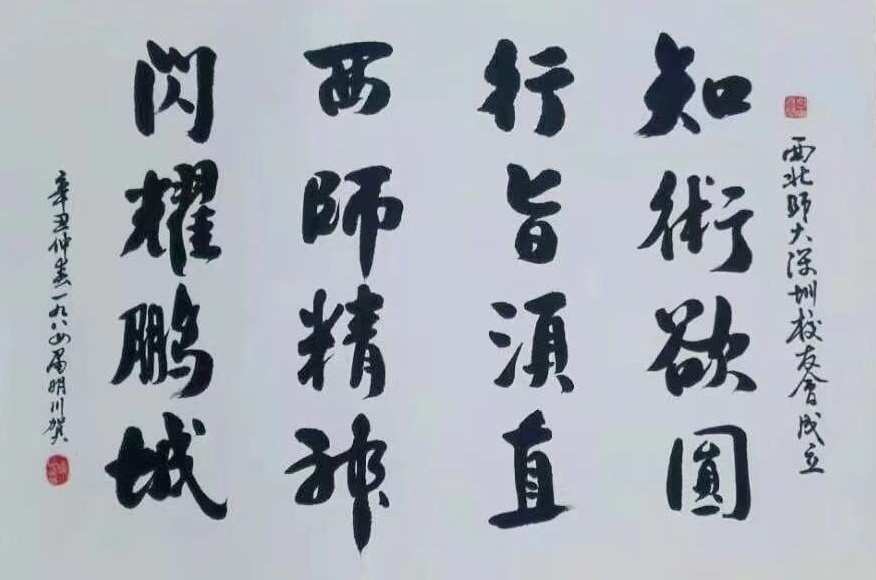 西北師大深圳校友會成立
知術欲圓
行旨須直
西師精神
閃耀鵬城
辛丑仲春一九八四届明川賀